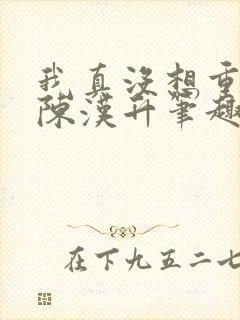 我真没想重
陈漢升筆趣
在下九五二七